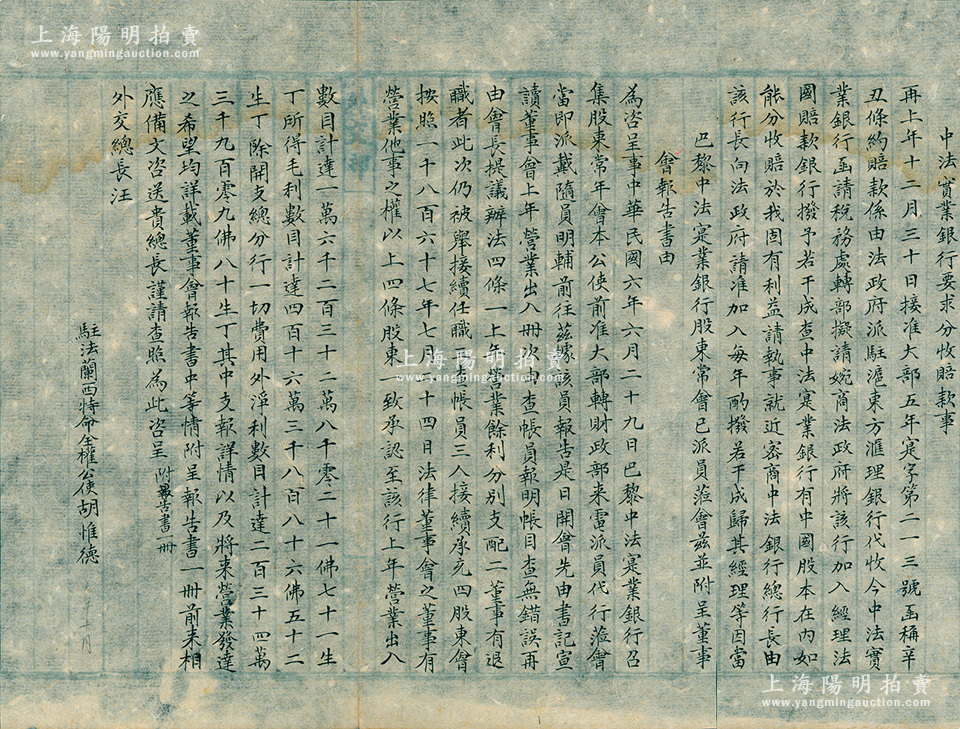 中法實業銀行要求分收賠款事
再上年十二月三十日接准大部五年寔字第二一三號函稱辛
丑條約賠款係由法政府派駐滬東方滙理銀行代收今中法實
業銀行函請稅務處轉部擬請婉商法政府將該行加入經理法
國賠款銀行撥予若干成查中法寔業銀行有中國股本在內如
能分收賠於我國有利益請執事就近密商中法銀行總行長由
該行長向法政府請准加入每年酌撥若干成歸其經理等因當
巴黎中法寔業銀行股東常會已派員蒞會茲並附呈董事
會報告書由
為咨呈事中華民國六年六月二十九日巴黎中法寔業銀行召
集股東常年會本公使前准大部轉財政部來電派員代行蒞會
當即派戴隨員明輔前往茲據該員報告是日開會先由書記宣
讀董事會上年營業出入冊次由查帳員報明帳目查無錯誤再
由會長提議辦法四條一上年營業餘利分別支配二董事有退
職者此次仍被舉接續任職三查帳員三人接續承充四股東會
按照一千八百六十七年七月二十四日法律董事會之董事有
營業他事之權以上四條股東一致承認至該行上年營業出入
數目計達一萬六千二百三十二萬八千零二十一佛七十一生
丁所得毛利數目計達四百十六萬三千八百八十六佛五十二
生丁除開支總分行一切費用外淨利數目計達二百三十四萬
三千九百零九佛八十生丁其中支報詳情以及將來營業發達
之希望均詳載董事會報告書中等情附呈報告書一冊前來相
應備文咨送貴總長謹請查照為此咨呈 附報告書一冊
外交總長汪
駐法蘭西特命全權公使胡惟德
上海陽明拍賣
www.yangmingauction.com
上海陽明拍賣
www.yangmingauction.com
上海陽明拍賣
www.yangmingauction.com